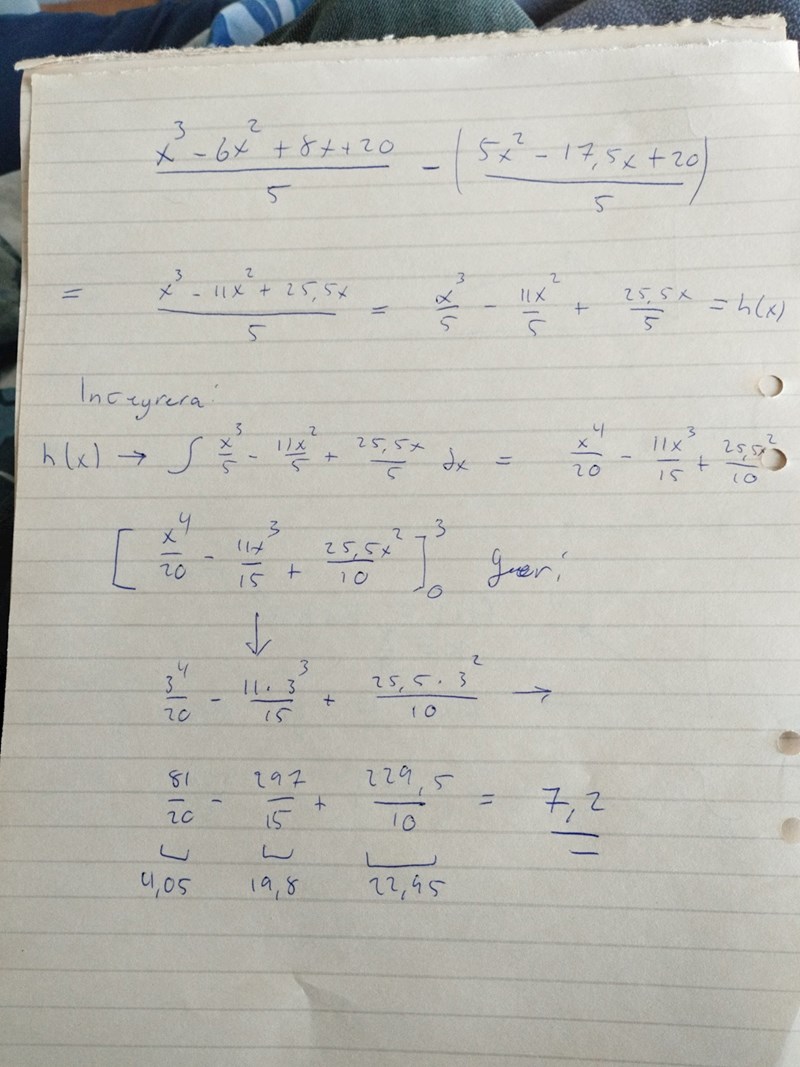 x³ - 6x² + 8x + 20 / 5 - (5x² - 17,5x + 20 / 5)
= x³ - 11x² + 25,5x / 5 = x³/5 - 11x²/5 + 25,5x/5 = h(x)
Integrera:
h(x) → ∫ x³/5 - 11x²/5 + 25,5x/5 dx = x⁴/20 - 11x³/15 + 25,5x²/10
[x⁴/20 - 11x³/15 + 25,5x²/10]₀³ ger:
↓
3⁴/20 - 11·3³/15 + 25,5·3²/10 →
81/20 - 297/15 + 229,5/10 = 7,2
4,05 19,8 22,95